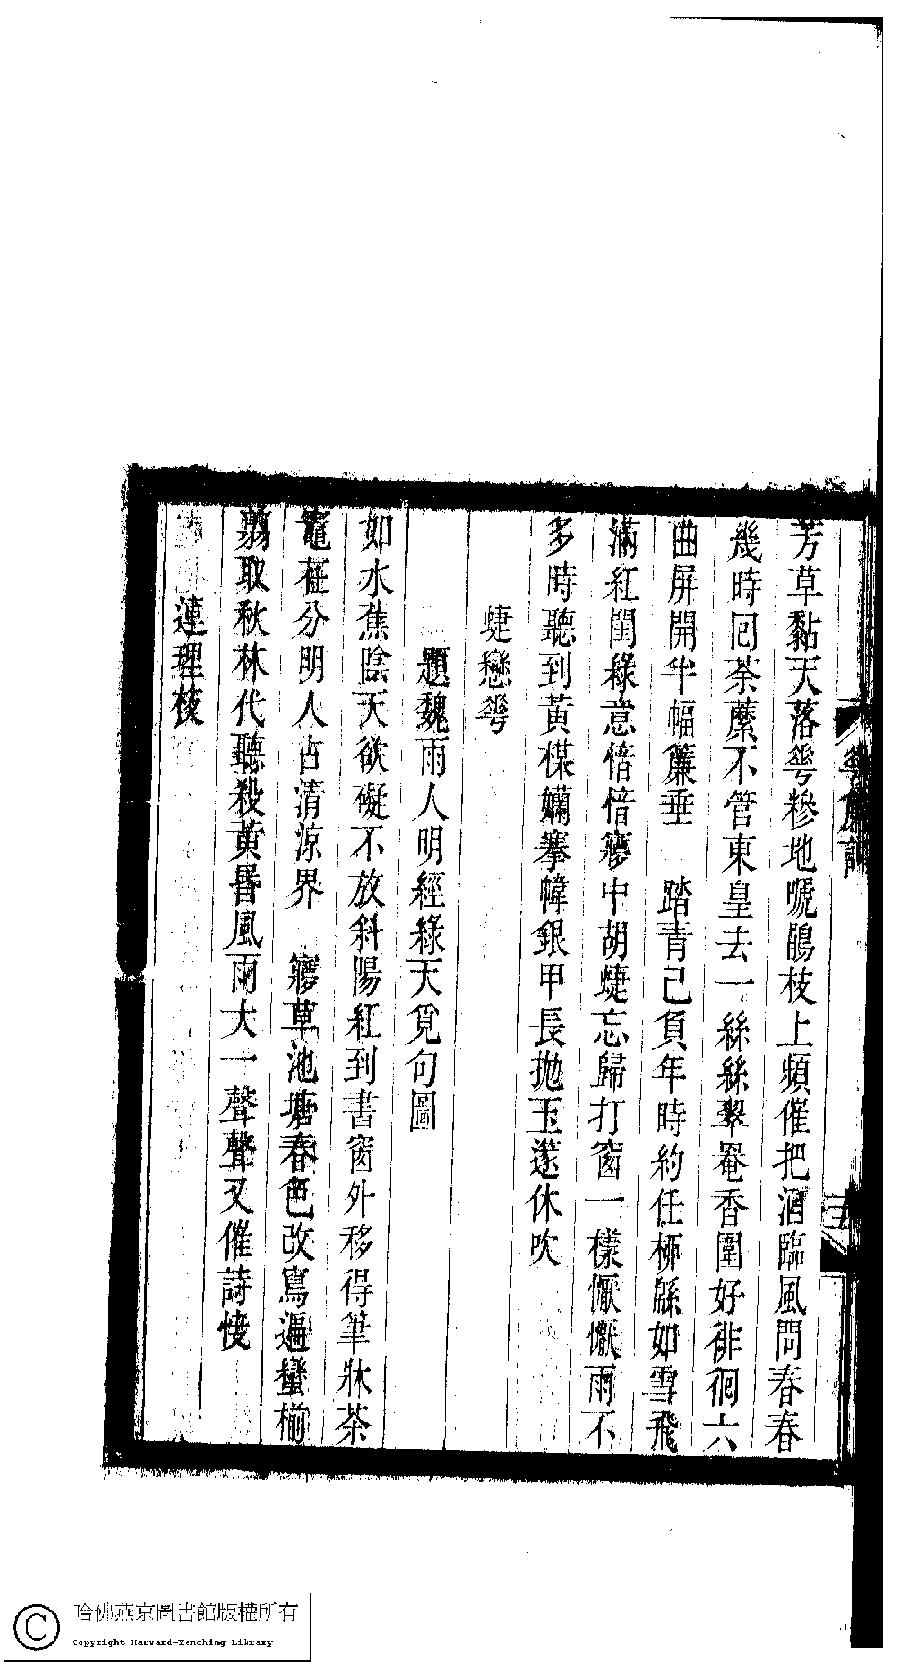 芳草黏天落蕚糝地嗁鵑枝上頻催把酒臨風問春春
幾時回荼蘼不管東皇去一絲絲翠罨香圍好徘徊六
曲屏開半幅簾垂　踏青已負年時約任栁緜如雪飛
滿紅閨綠意愔愔夢中胡蜨忘歸打窗一樣懨懨雨不
多時聽到黃楳嬾搴幃銀甲長拋玉邃休吹
蜨戀蕚
題魏雨人明經綠天覓句圖
如水蕉陰天欲礙不放斜陽紅到書窗外移得筆牀茶
竈在分明人占清涼界　夢草池塘春色改寫遍蠻榆
翦取秋林代聽殺黃昏風雨大一聲聲又催詩快
連理枝
簾
五
哈佛燕京圖書館版權所有
Copyright Harvard-Yenching Library